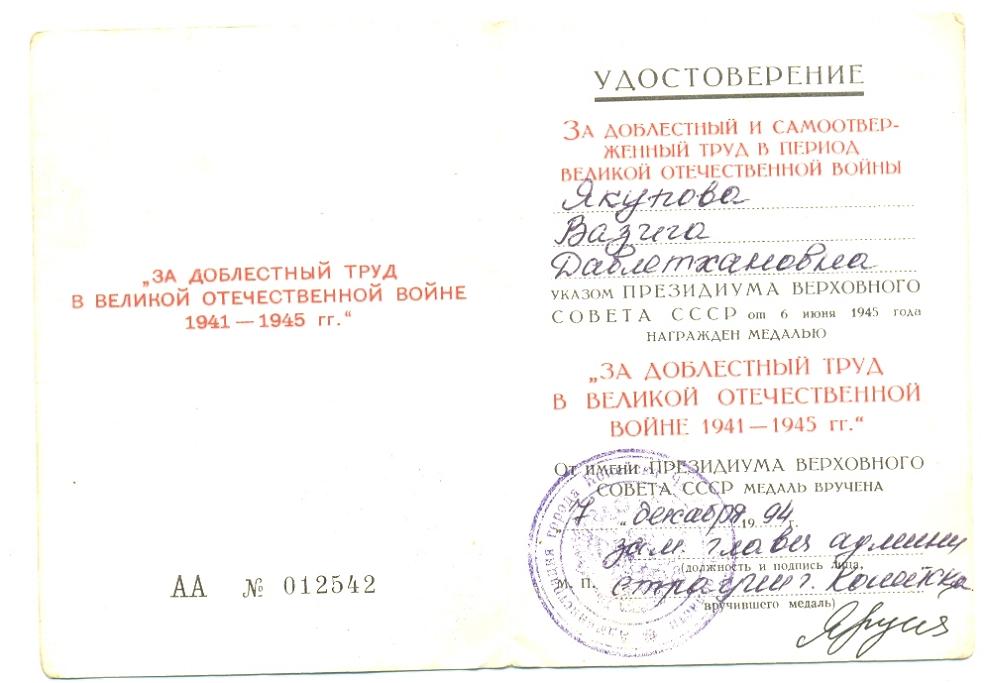 „ЗА ДОБЛЕСТНЫЙ ТРУД
В ВЕЛИКОЙ ОТЕЧЕСТВЕННОЙ ВОЙНЕ
1941—1945 гг.“
АА № 012542
УДОСТОВЕРЕНИЕ
ЗА ДОБЛЕСТНЫЙ И САМООТВЕР-
ЖЕННЫЙ ТРУД В ПЕРИОД
ВЕЛИКОЙ ОТЕЧЕСТВЕННОЙ ВОЙНЫ
Якупова
Вазига
Давлетхановна
УКАЗОМ ПРЕЗИДИУМА ВЕРХОВНОГО
СОВЕТА СССР от 6 июня 1945 года
НАГРАЖДЕН МЕДАЛЬЮ
„ЗА ДОБЛЕСТНЫЙ ТРУД
В ВЕЛИКОЙ ОТЕЧЕСТВЕННОЙ
ВОЙНЕ 1941—1945 гг.“
ОТ ИМЕНИ ПРЕЗИДИУМА ВЕРХОВНОГО
СОВЕТА СССР МЕДАЛЬ ВРУЧЕНА
„7“ декабря 1994 г.
зам. главы админи
(должность и подпись лица,
М. П. страции г. Копейска
вручившего медаль)
Администрация города